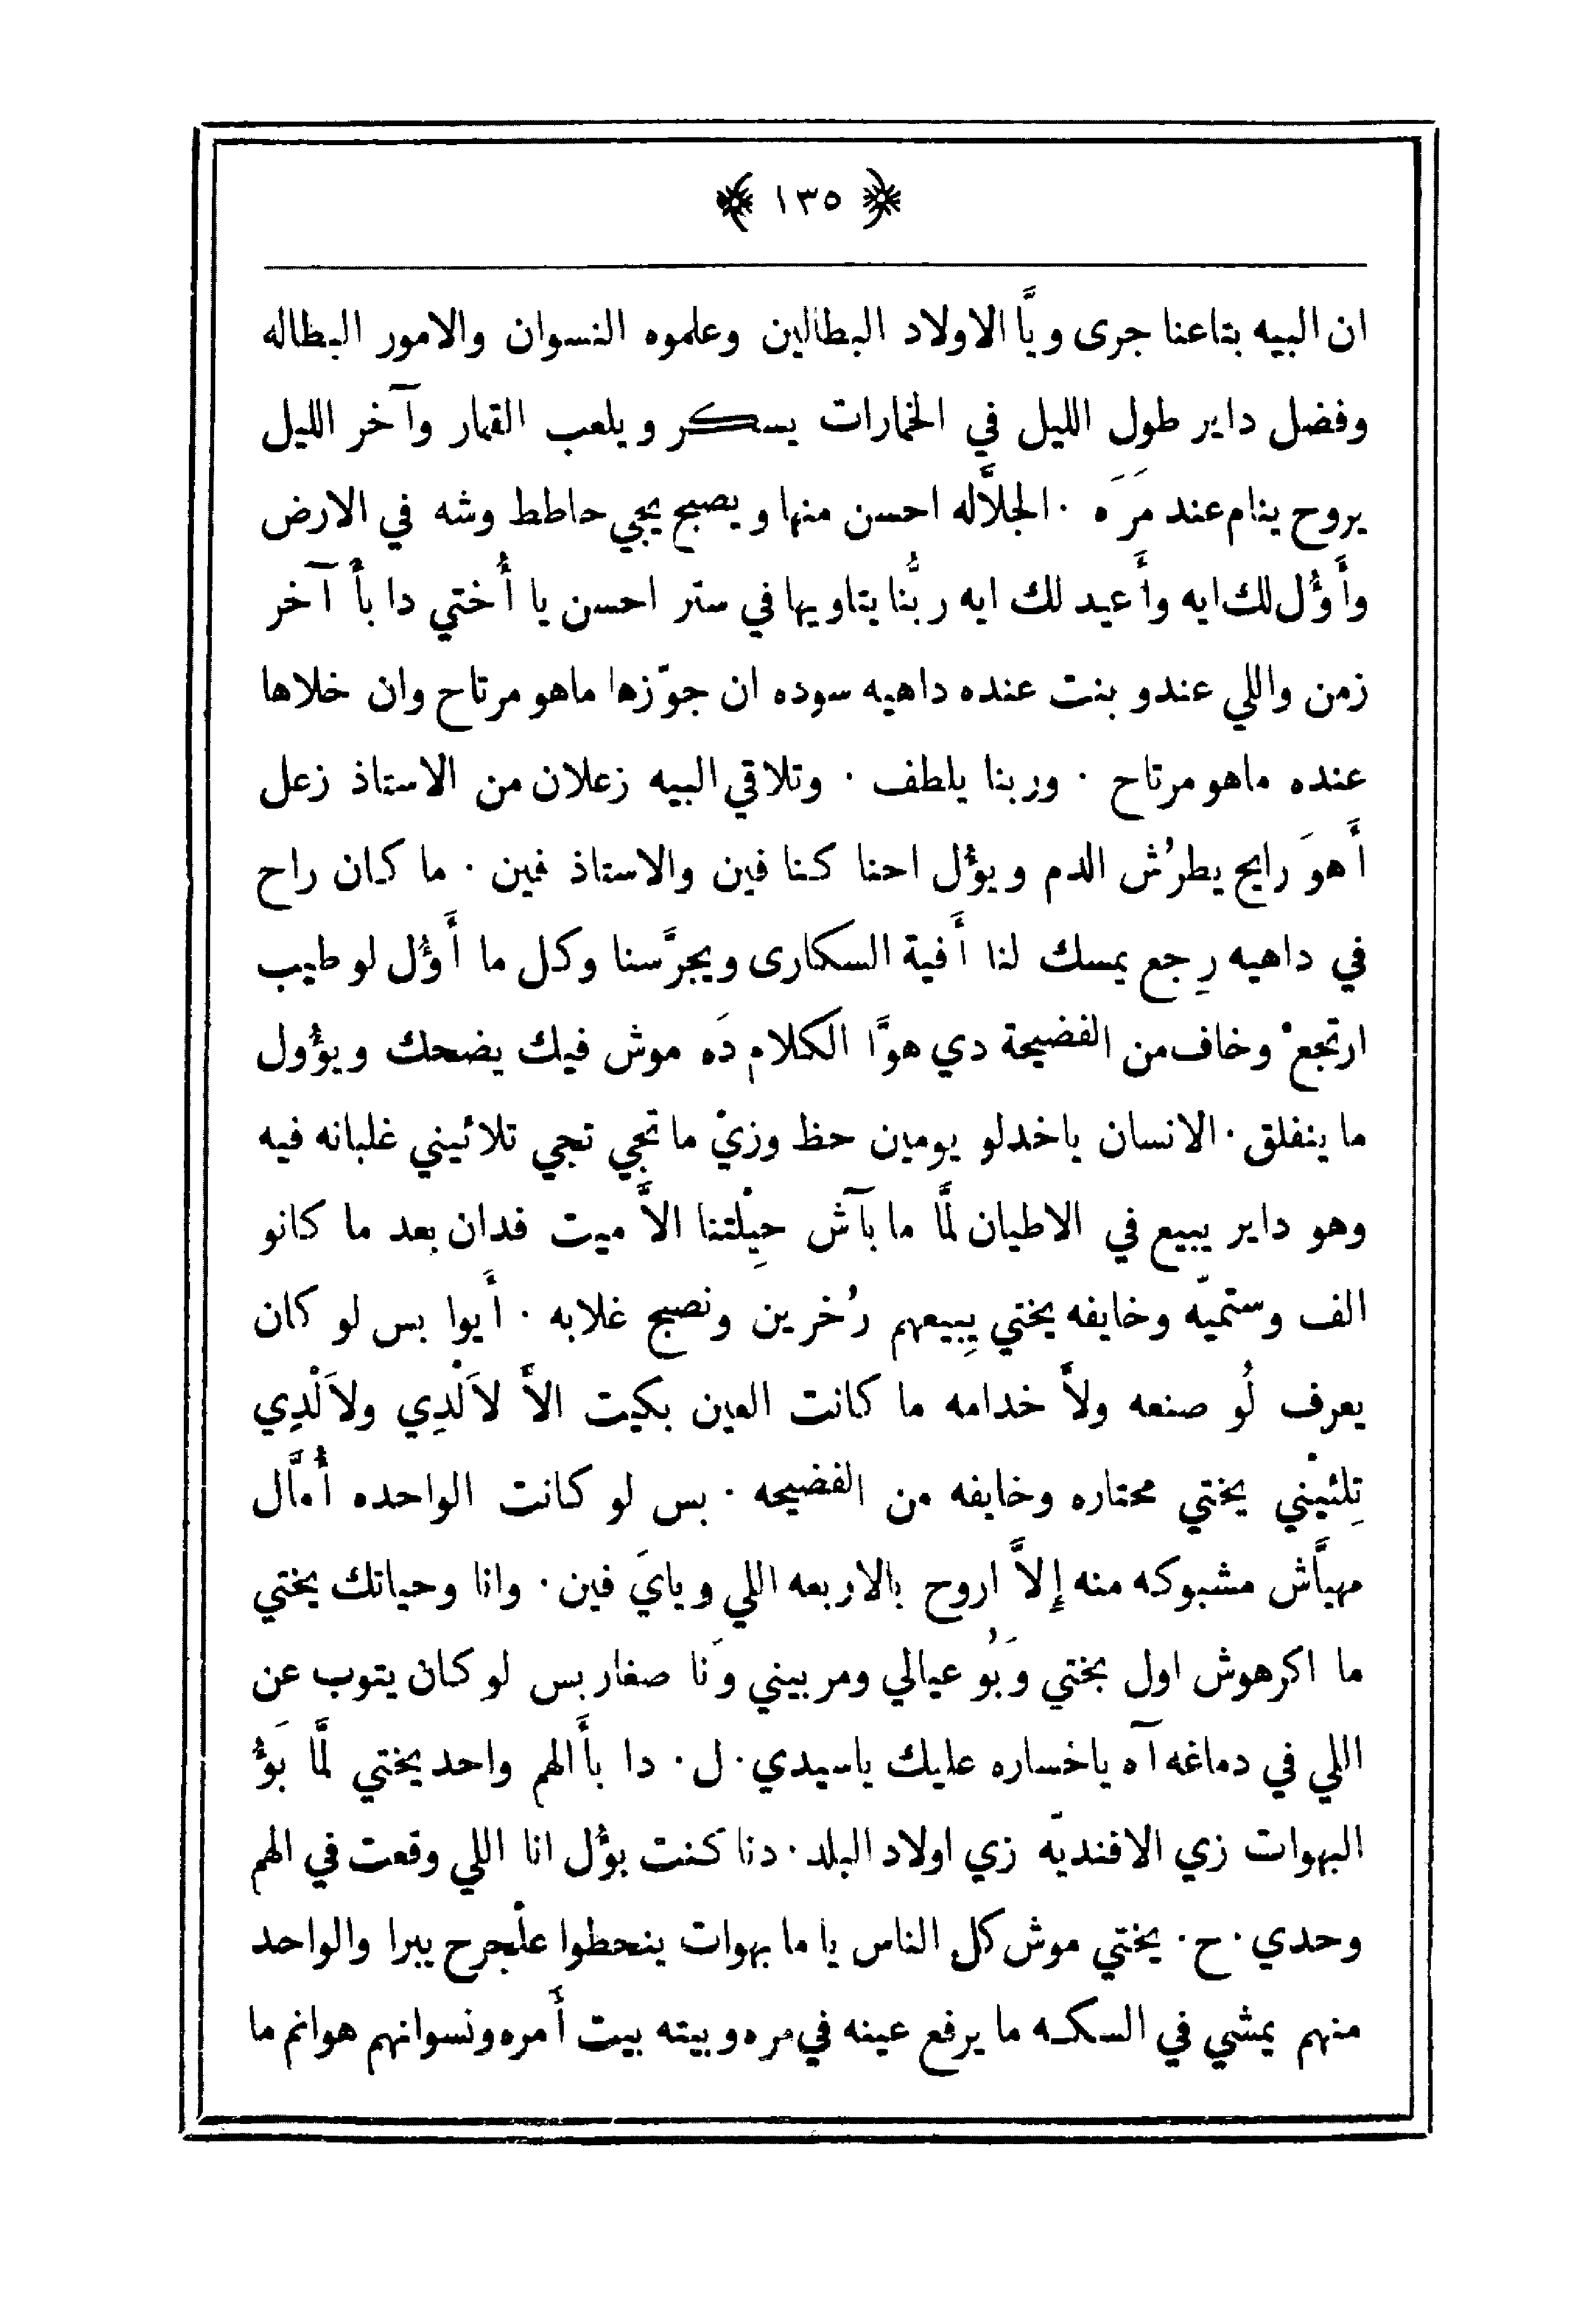 ﴿ ١٣٥ ﴾
ان البيه بتاعنا جرى ويَّا الاولاد البطالين وعلموه النسوان والامور البطاله
وفضل داير طول الليل في الخمارات يسكر ويلعب القمار وآخر الليل
يروح ينام عند مَرَه · الجلاَّله احسن منها ويصبح يجي حاطط وشه في الارض
وأَوُّل لك ايه وأَعيد لك ايه ربُّنا يتاويها في ستر احسن يا أُختي دا بأَ آخر
زمن واللي عندو بنت عنده داهيه سوده ان جوّزها ماهو مرتاح وان خلاها
عنده ماهو مرتاح · وربنا يلطف · وتلاقي البيه زعلان من الاستاذ زعل
أَهوَ رايح يطرُش الدم ويؤل احنا كنا فين والاستاذ فين · ما كان راح
في داهيه رِجع يمسك لنا أَفية السكارى ويجرَّسنا وكل ما أَوُّل لو طيب
ارتجعْ وخاف من الفضيحة دي هوَّا الكلام دَه موش فيك يضحك ويؤول
ما ينفلق · الانسان ياخدلو يومين حظ وزيْ ما تجي تجي تلائيني غلبانه فيه
وهو داير يبيع في الاطيان لمَّا ما بآش حِيْلتنا الاَّ ميت فدان بعد ما كانو
الف وستميّه وخايفه يختي يِبيعهم رُخرين ونصبح غلابه · أَيوا بس لو كان
يعرف لُو صنعه ولاَّ خدامه ما كانت العين بكيت الاَّ لاَلْدِي ولاَلْدِي
تِلئيْني يختي محتاره وخايفه من الفضيحه · بس لو كانت الواحده أُمَّال
مهيَّاش مشبوكه منه إِلاَّ اروح بالاربعه اللي ويايَ فين · وانا وحياتك يختي
ما اكرهوش اول بختي وَبُو عيالي ومربيني وَنا صغار بس لو كان يتوب عن
اللي في دماغه آه ياخساره عليك ياسيدي · ل · دا بأَ الهم واحد يختي لمَّا بَوُّ
البهوات زي الافنديّه زي اولاد البلد · دنا كنت بؤُل انا اللي وقعت في الهم
وحدي · ح · يختي موش كل الناس يا ما بهوات ينحطوا علْجرح يبرا والواحد
منهم يمشي في السكه ما يرفع عينه في مره وبيته بيت أَمره ونسوانهم هوانم ما